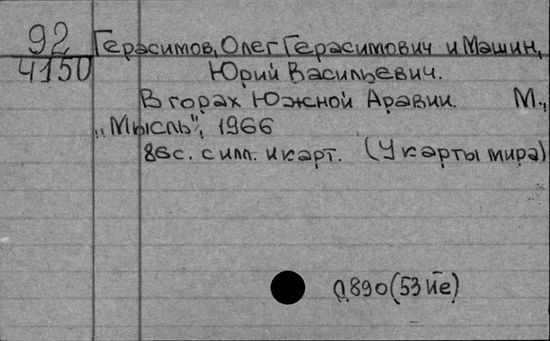 92 Герасимов, Олег Герасимович и Машин,
4150 Юрий Васильевич.
В горах Южной Аравии. М.,
„Мысль”, 1966
86с. с илл. и карт. (У карты мира)
0.890(53 Йе)